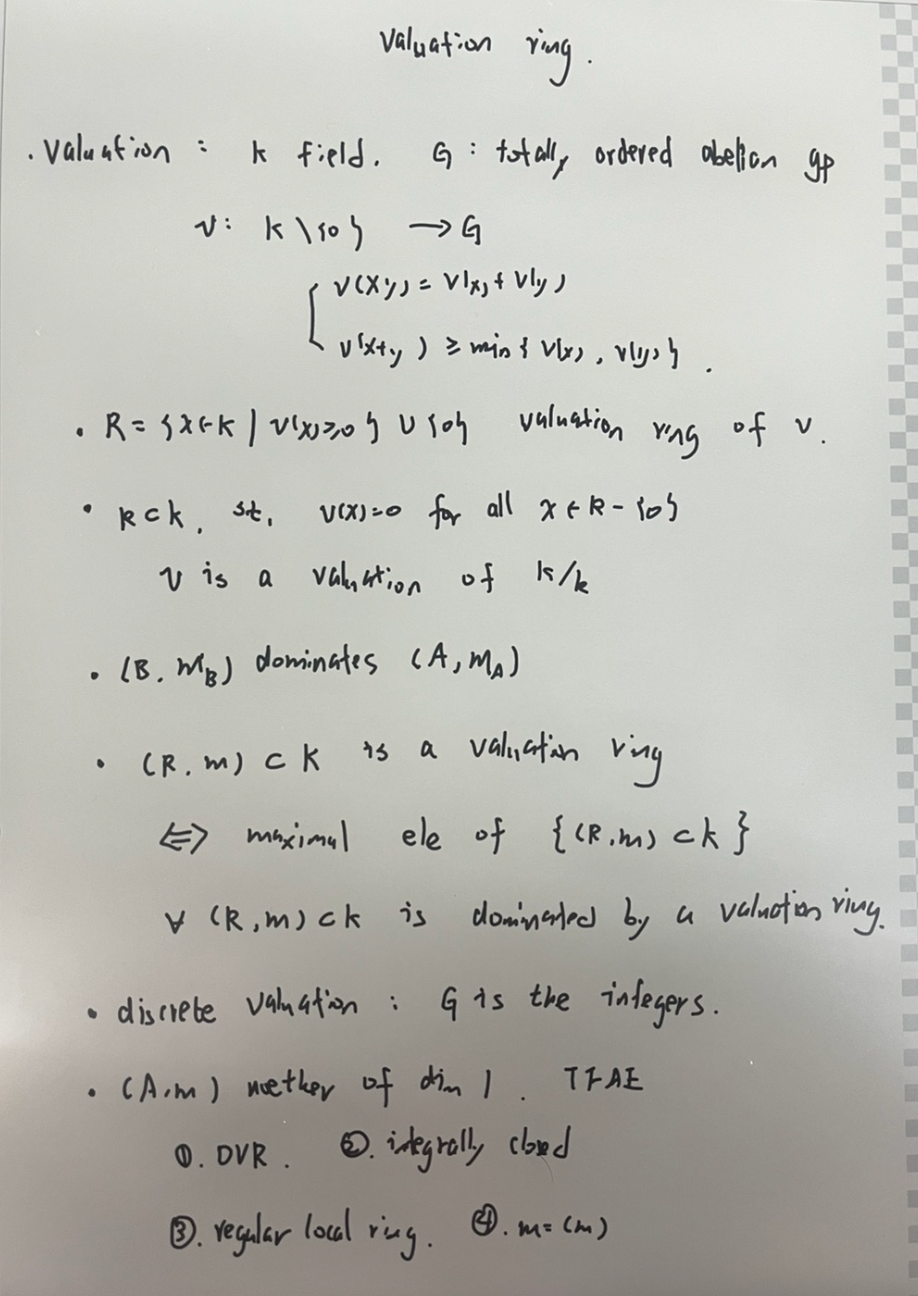 Valuation ring.
· Valuation : K field. G : totally ordered abelian gp
v: K \ {0} → G
v(xy) = v(x) + v(y)
v(x+y) ≥ min { v(x), v(y) }.
· R = {x ∈ K | v(x) ≥ 0} ∪ {0} valuation ring of v.
· k ⊂ K, st. v(x)=0 for all x ∈ k - {0}
v is a valuation of K/k
· (B, m_B) dominates (A, m_A)
· (R, m) ⊂ K is a valuation ring
⇔ maximal ele of {(R, m) ⊂ K}
∀ (R, m) ⊂ K is dominated by a valuation ring.
· discrete valuation : G is the integers.
· (A, m) noether of dim 1. TFAE
①. DVR. ②. integrally closed
③. regular local ring. ④. m = (m)